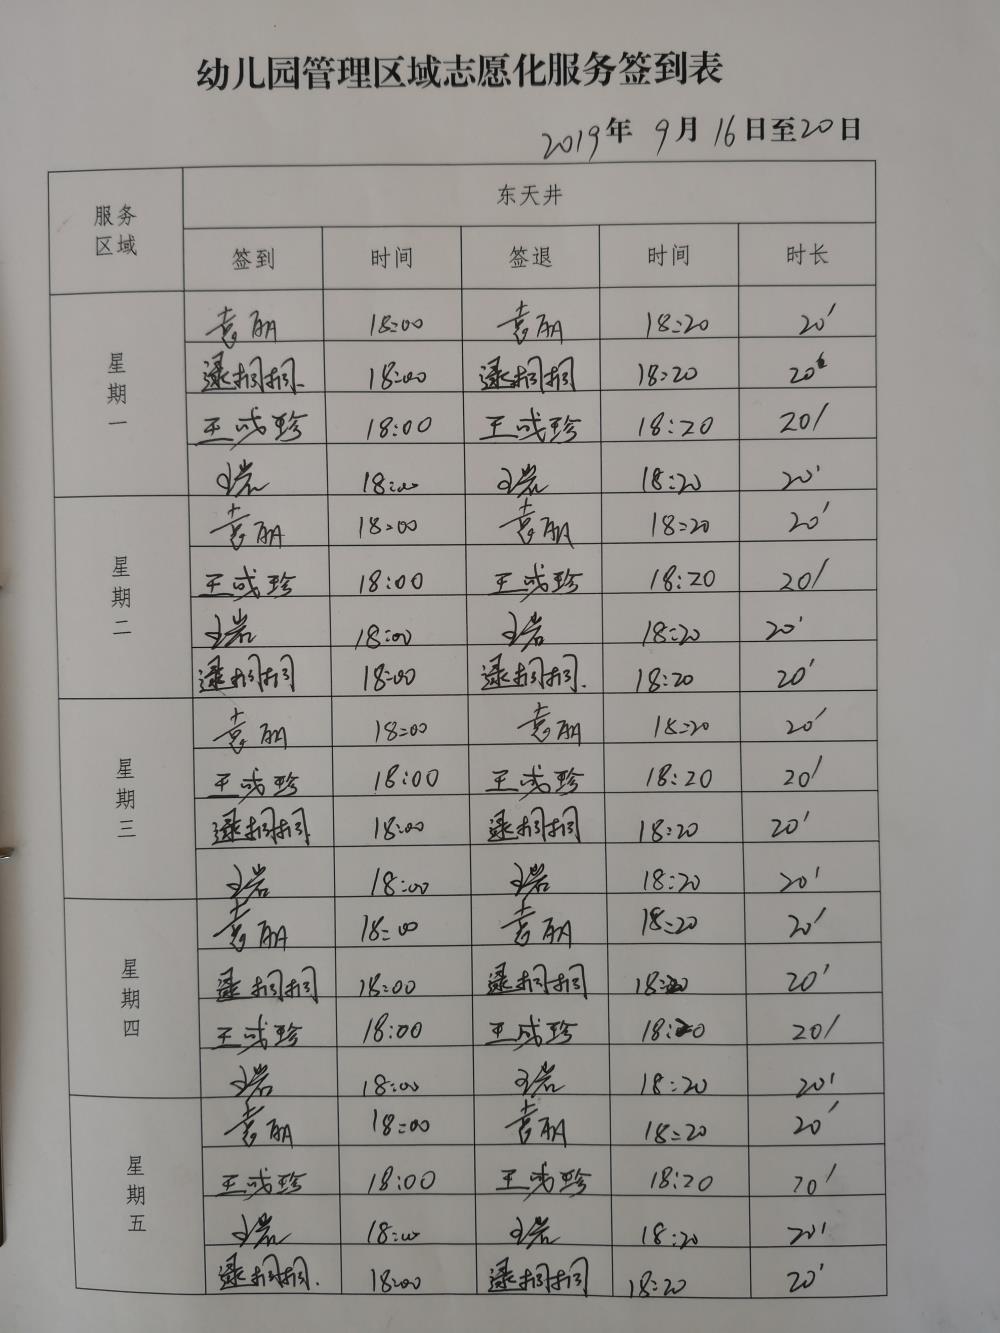 幼儿园管理区域志愿化服务签到表
2019年 9月 16日至20日
服务区域 东天井
签到 时间 签退 时间 时长
星期一
袁丽 18:00 袁丽 18:20 20'
逯桐桐 18:00 逯桐桐 18:20 20'
王成珍 18:00 王成珍 18:20 20'
王岩 18:00 王岩 18:20 20'
星期二
袁丽 18:00 袁丽 18:20 20'
王成珍 18:00 王成珍 18:20 20'
王岩 18:00 王岩 18:20 20'
逯桐桐 18:00 逯桐桐 18:20 20'
星期三
袁丽 18:00 袁丽 18:20 20'
王成珍 18:00 王成珍 18:20 20'
逯桐桐 18:00 逯桐桐 18:20 20'
王岩 18:00 王岩 18:20 20'
星期四
袁丽 18:00 袁丽 18:20 20'
逯桐桐 18:00 逯桐桐 18:20 20'
王成珍 18:00 王成珍 18:20 20'
王岩 18:00 王岩 18:20 20'
星期五
袁丽 18:00 袁丽 18:20 20'
王成珍 18:00 王成珍 18:20 20'
王岩 18:00 王岩 18:20 20'
逯桐桐 18:00 逯桐桐 18:20 20'